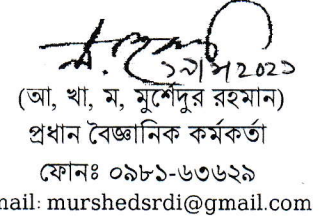 (আ, খা, ম, মুর্শেদুর রহমান)
প্রধান বৈজ্ঞানিক কর্মকর্তা
ফোনঃ ০৯৮১-৬৩৬২৯
nail: murshedsrdi@gmail.com